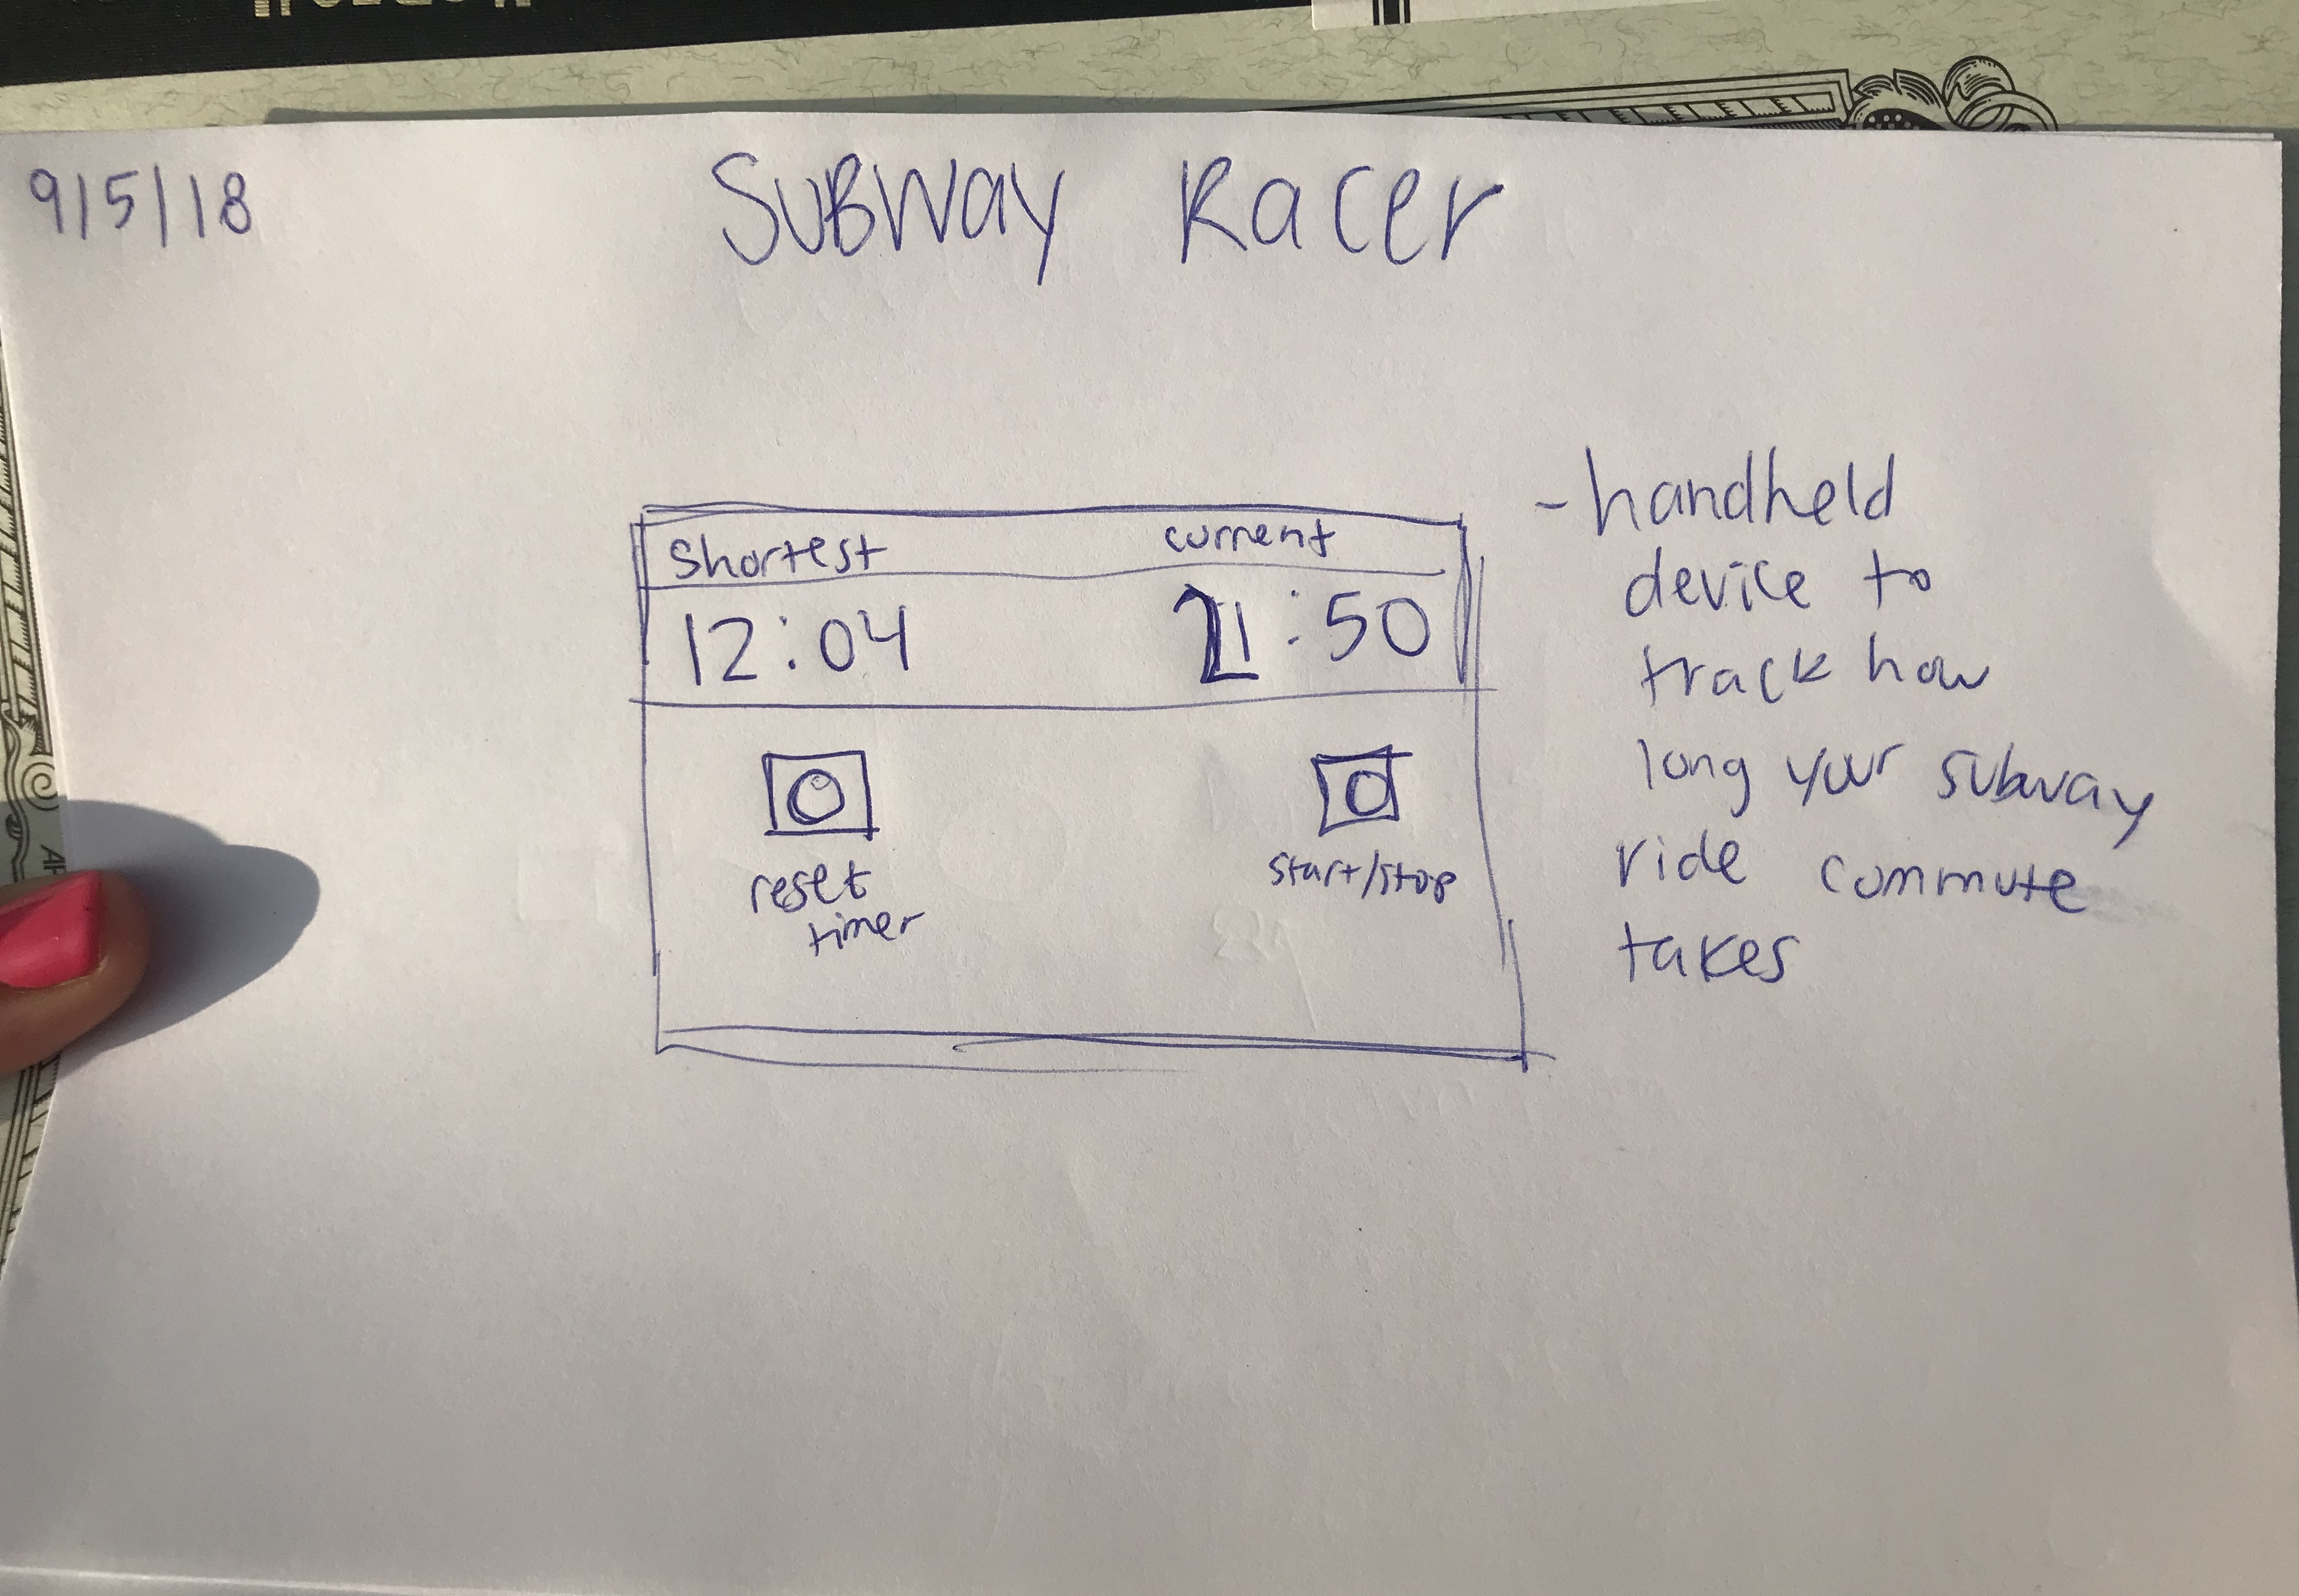 9/5/18
Subway Racer
Shortest current
12:04 21:50
reset
timer
start/stop
- handheld
device to
track how
long your subway
ride commute
takes